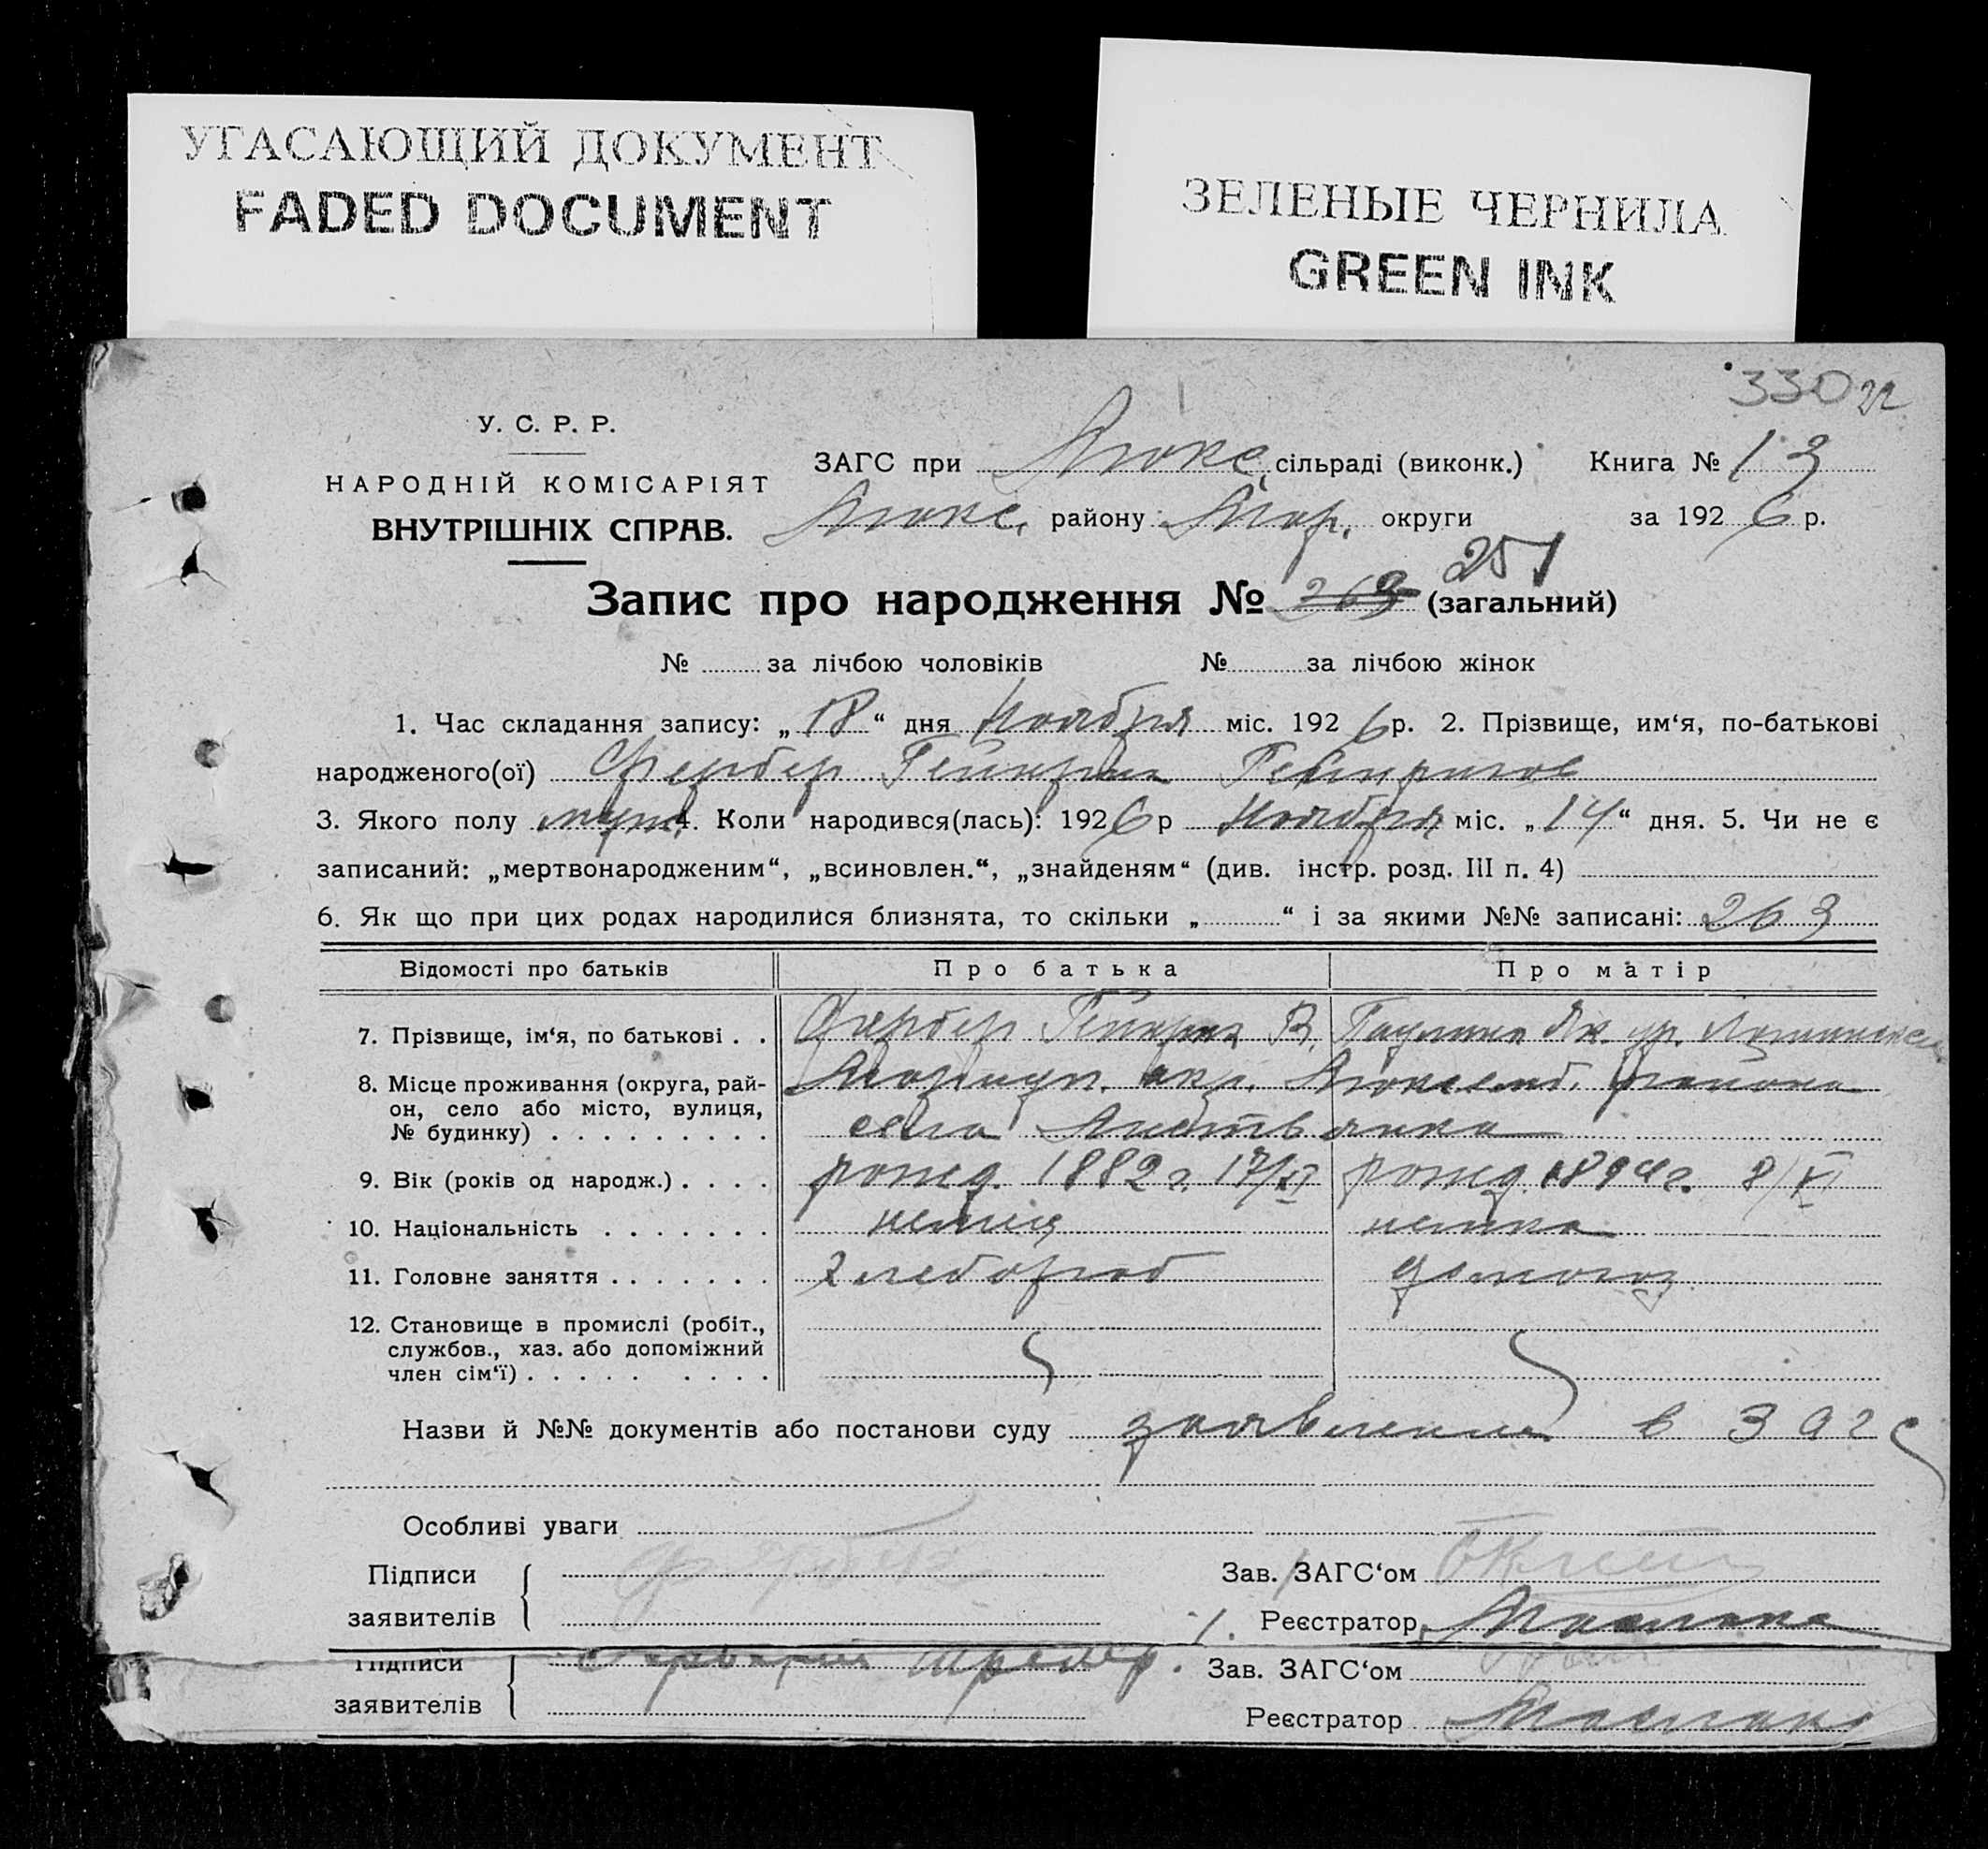 УГАСАЮЩИЙ ДОКУМЕНТ
FADED DOCUMENT
ЗЕЛЕНЫЕ ЧЕРНИЛА
GREEN INK
330
У. С. Р. Р.
НАРОДНІЙ КОМІСАРІЯТ
ВНУТРІШНІХ СПРАВ.
ЗАГС при Люкс. сільраді (виконк.) Книга № 13
Люкс. району Мар. округи за 1926 р.
251
Запис про народження № 263 (загальний)
№ за лічбою чоловіків № за лічбою жінок
1. Час складання запису: „18“ дня Ноября міс. 1926 р. 2. Прізвище, им‘я, по-батькові
народженого(ої) Фербер Гейнрих Гейнрихов
3. Якого полу муж. 4. Коли народився(лась): 1926 р Ноября міс. „14“ дня. 5. Чи не є
записаний: „мертвонародженим“, „всиновлен.“, „знайденям“ (див. інстр. розд. III п. 4)
6. Як що при цих родах народилися близнята, то скільки „ “ і за якими №№ записані: 263
Відомості про батьків Про батька Про матір
7. Прізвище, ім‘я, по батькові . . Фербер Гейнрих В. Паулина Як. ур.
8. Місце проживання (округа, рай-
он, село або місто, вулиця,
№ будинку) . . . . . . . . .
Мариуп. окр. Люксемб. района
села Листвянка
9. Вік (років од народж.) . . . . рожд. 1882 г. 17/XI рожд. 1894 г. 8/XI
10. Національність . . . . . . . немец немка
11. Головне заняття . . . . . . . хлебороб домохоз.
12. Становище в промислі (робіт.,
службов., хаз. або допоміжний
член сім‘ї) . . . . . . . . .
Назви й №№ документів або постанови суду заявление в ЗАГС
Особливі уваги
Підписи
заявителів
Фербер
Зав. ЗАГС‘ом
Реєстратор
Підписи
заявителів
Зав. ЗАГС‘ом
Реєстратор